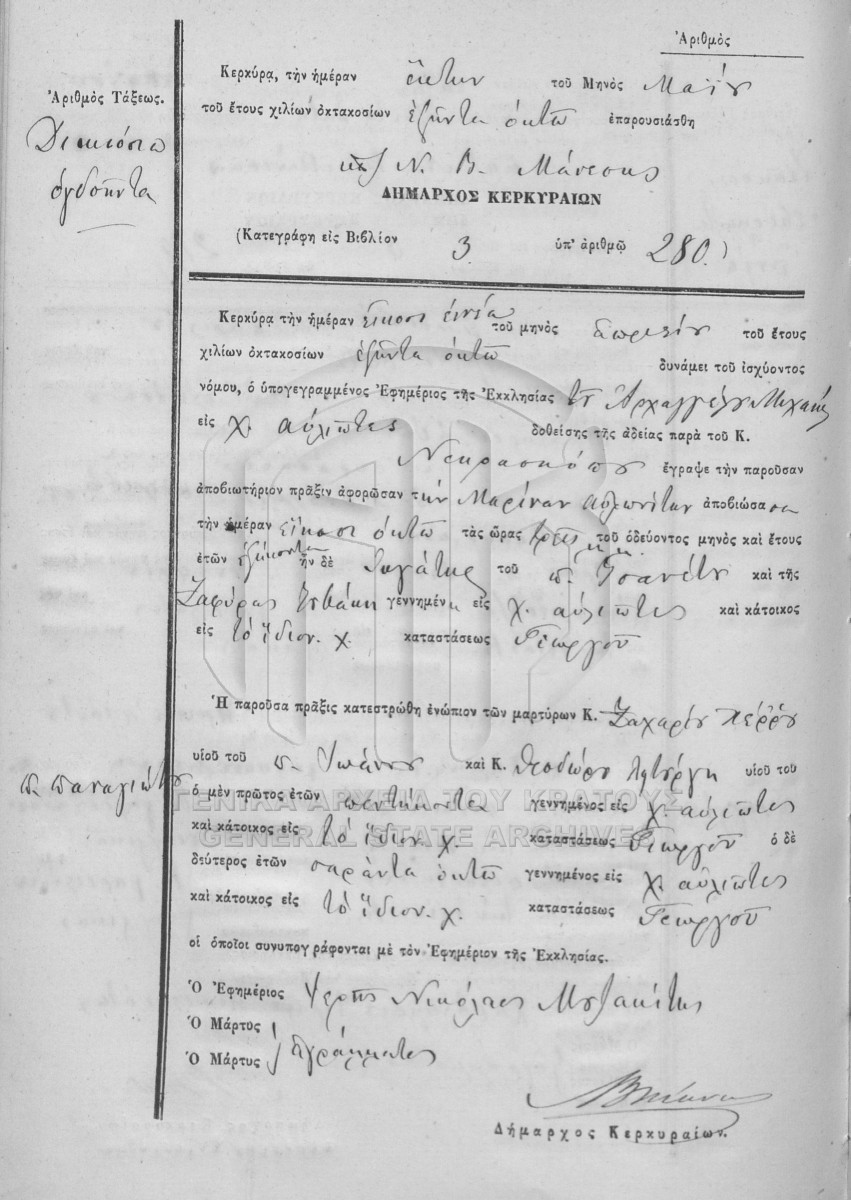 Ἀριθμὸς
Κερκύρᾳ, τὴν ἡμέραν ἕκτην τοῦ Μηνὸς Μαΐου
Ἀριθμὸς Τάξεως.
τοῦ ἔτους χιλίων ὀκτακοσίων ἑξῆντα ὀκτὼ ἐπαρουσιάσθη
Διακόσια
ὀγδοῆντα
Ν. Β. Μάνεσης
ΔΗΜΑΡΧΟΣ ΚΕΡΚΥΡΑΙΩΝ
(Κατεγράφη εἰς Βιβλίον 3 ὑπ' ἀριθμῷ 280.)
Κερκύρᾳ τὴν ἡμέραν εἴκοσι ἐννέα τοῦ μηνὸς ἀπριλίου τοῦ ἔτους
χιλίων ὀκτακοσίων ἑξῆντα ὀκτὼ δυνάμει τοῦ ἰσχύοντος
νόμου, ὁ ὑπογεγραμμένος Ἐφημέριος τῆς Ἐκκλησίας τοῦ Ἀρχαγγέλου Μιχαὴλ
εἰς χ. αὐλιῶτες δοθείσης τῆς ἀδείας παρὰ τοῦ Κ.
Νεκροσκόπου ἔγραψε τὴν παροῦσαν
ἀποβιωτήριον πρᾶξιν ἀφορῶσαν τὴν Μαρίναν Αὐλωνίτην ἀποβιώσασα
τὴν ἡμέραν εἴκοσι ὀκτὼ τὰς ὥρας τρεῖς τοῦ ὁδεύοντος μηνὸς καὶ ἔτους
ἐτῶν ἑξήκοντα ἦν δὲ θυγάτηρ τοῦ π. Τσανέτου καὶ τῆς
Ζαφύρας γεννημένη εἰς χ. αὐλιῶτες καὶ κάτοικος
εἰς τὸ ἴδιον. χ. καταστάσεως Γεωργοῦ
Ἡ παροῦσα πρᾶξις κατεστρώθη ἐνώπιον τῶν μαρτύρων Κ. Ζαχαρίου
υἱοῦ τοῦ π. Ἰωάννου καὶ Κ. Θεοδώρου υἱοῦ τοῦ
π. Παναγιώτου
ὁ μὲν πρῶτος ἐτῶν πεντήκοντα γεννημένος εἰς χ. αὐλιῶτες
ΓΕΝΙΚΑ ΑΡΧΕΙΑ ΤΟΥ ΚΡΑΤΟΥΣ
καὶ κάτοικος εἰς τὸ ἴδιον. χ. καταστάσεως Γεωργοῦ ὁ δὲ
GENERAL STATE ARCHIVES
δεύτερος ἐτῶν σαράντα ὀκτὼ γεννημένος εἰς χ. αὐλιῶτες
καὶ κάτοικος εἰς τὸ ἴδιον. χ. καταστάσεως Γεωργοῦ
οἱ ὁποῖοι συνυπογράφονται μὲ τὸν Ἐφημέριον τῆς Ἐκκλησίας.
Ὁ Ἐφημέριος Ἱερεὺς Νικόλαος Μουζακίτης
Ὁ Μάρτυς
Ὁ Μάρτυς ἀγράμματος
Δήμαρχος Κερκυραίων.